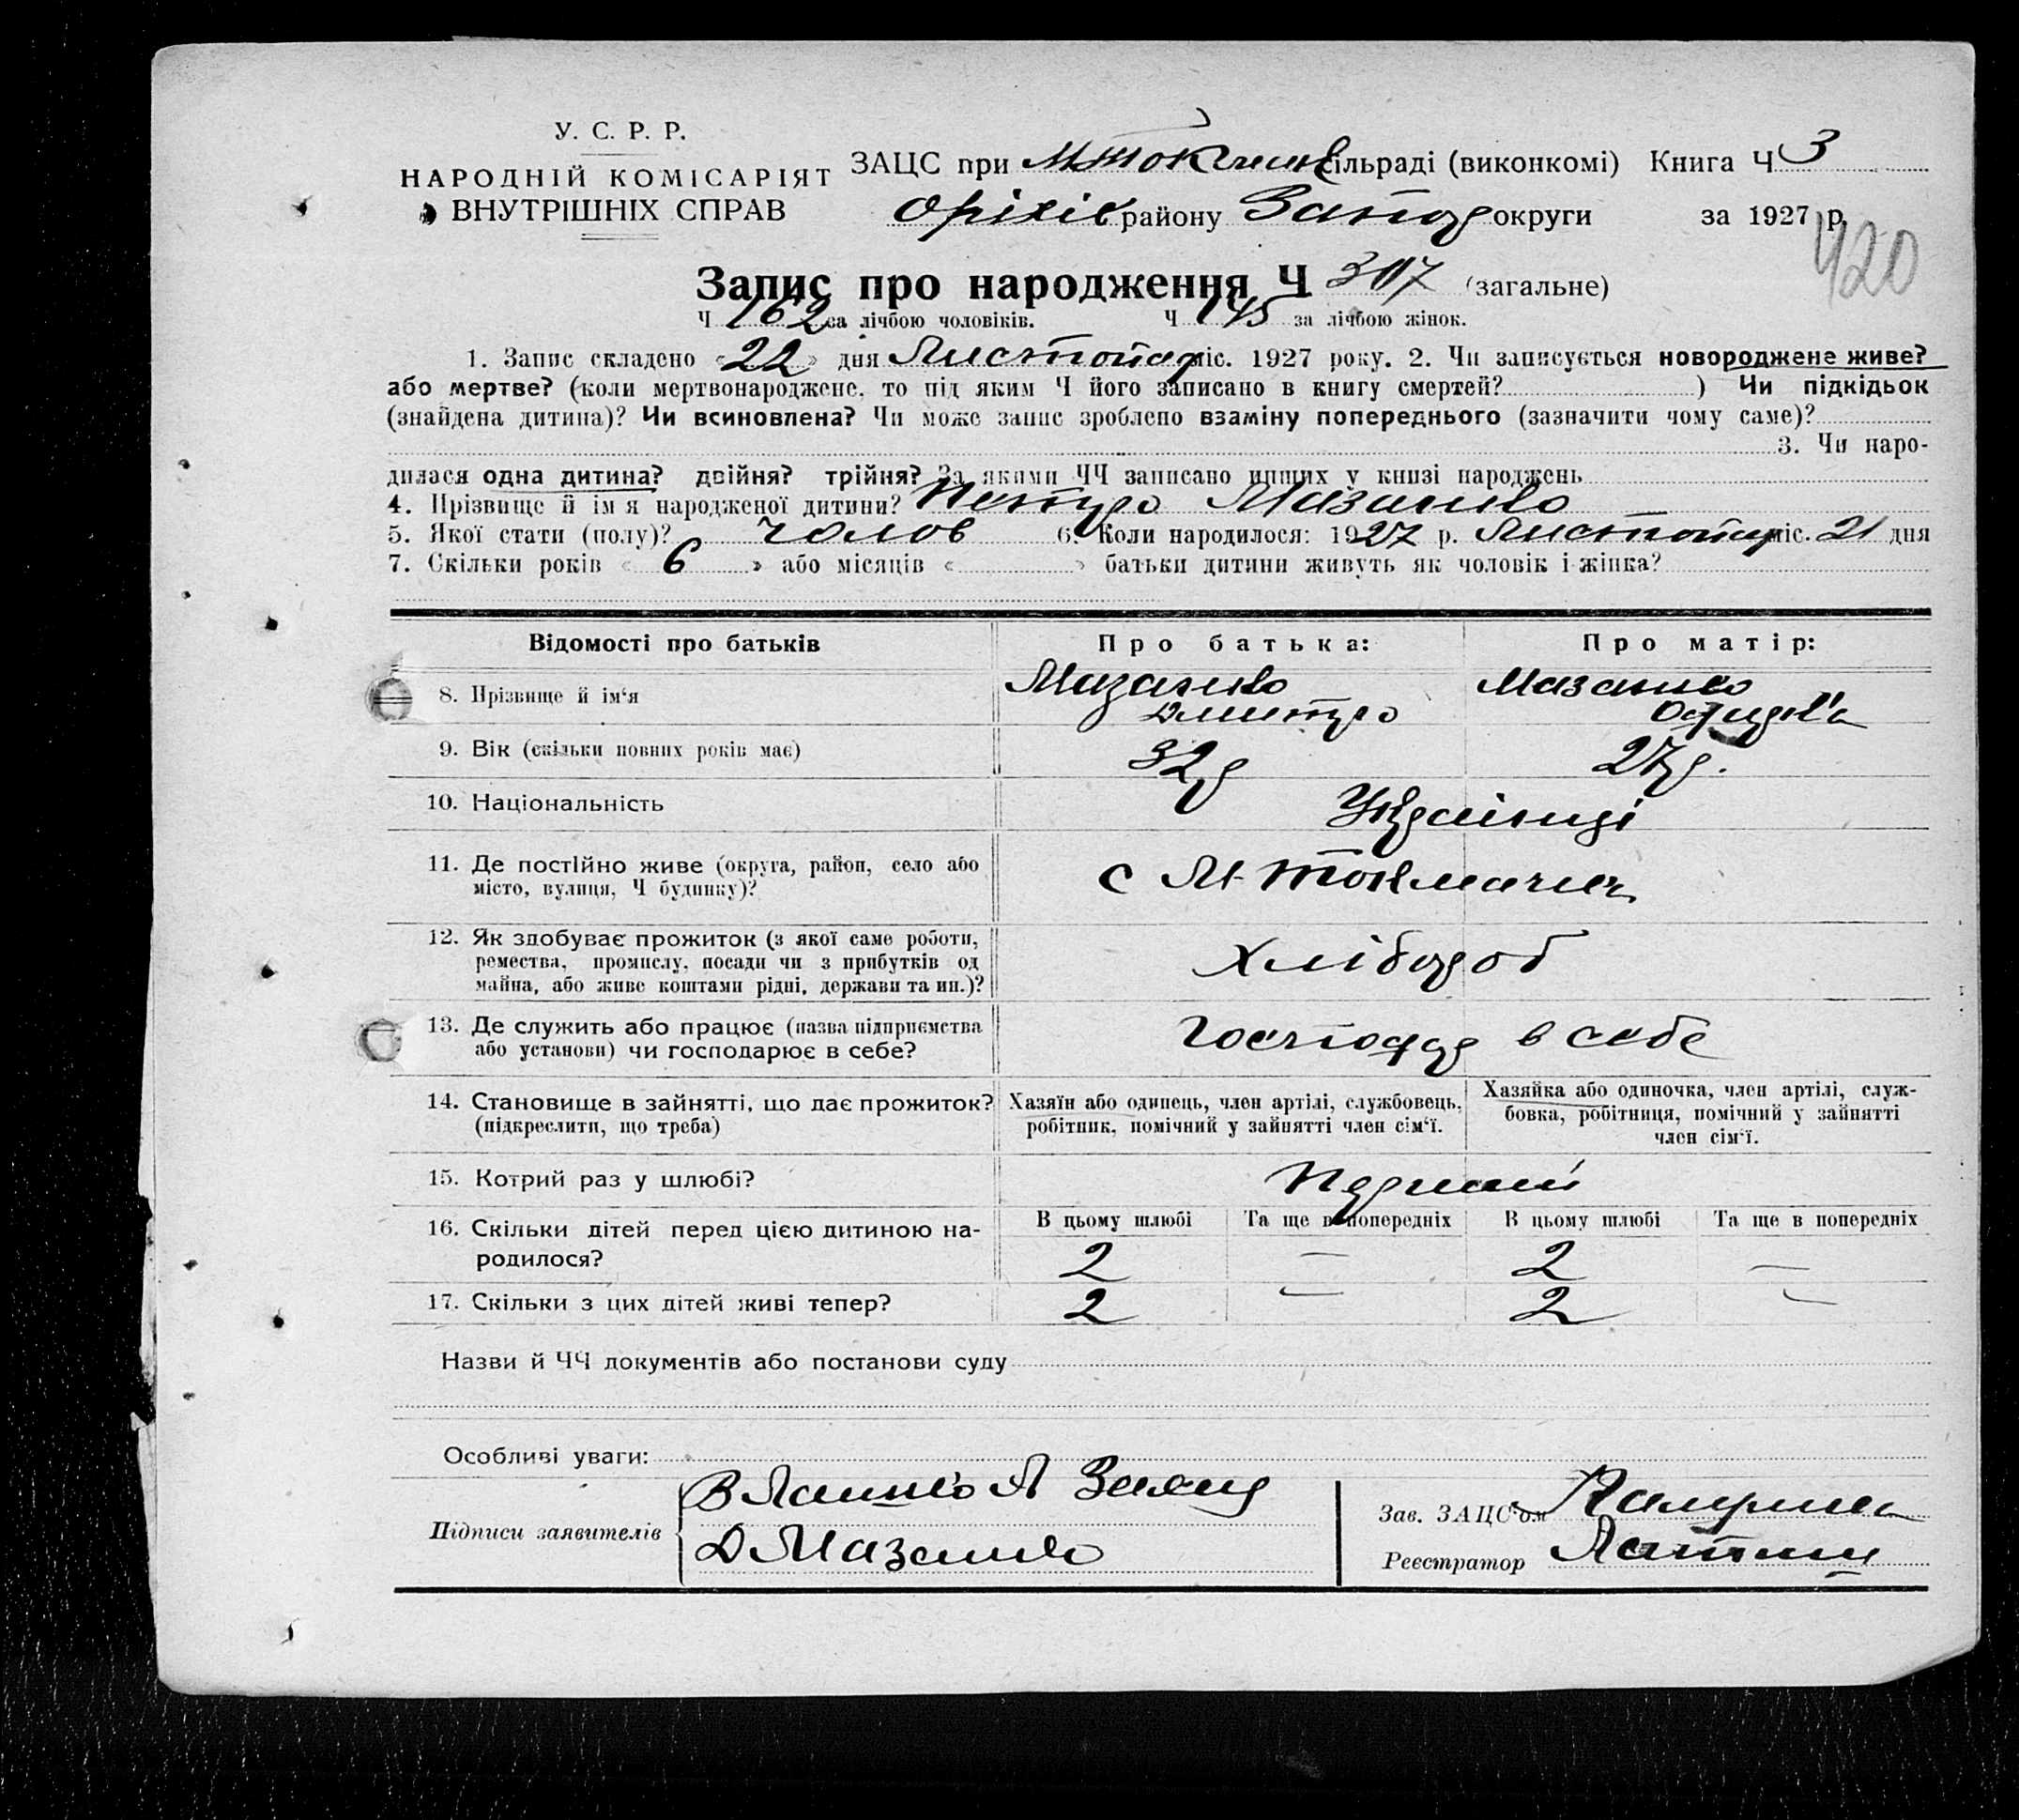 У. С. Р. Р.
НАРОДНІЙ КОМІСАРІЯТ
ВНУТРІШНІХ СПРАВ
ЗАЦС при сільраді (виконкомі) Книга Ч 3
Оріхів району Запор округи за 1927 р.
420
Запис про народження Ч 307 (загальне)
Ч 162 за лічбою чоловіків. Ч 145 за лічбою жінок.
1. Запис складено «22» дня Листопад міс. 1927 року. 2. Чи записується новороджене живе?
або мертве? (коли мертвонароджене, то під яким Ч його записано в книгу смертей? ) Чи підкідьок
(знайдена дитина)? Чи всиновлена? Чи може запис зроблено взаміну попереднього (зазначити чому саме)?
3. Чи наро-
дилася одна дитина? двійня? трійня? За якими ЧЧ записано инших у книзі народжень
4. Прізвище й ім‘я народженої дитини? Петро Мазанко
5. Якої стати (полу)? чолов 6. Коли народилося: 1927 р. Листопад міс. 21 дня
7. Скільки років « 6 » або місяців « » батьки дитини живуть як чоловік і жінка?
Відомості про батьків Про батька: Про матір:
8. Прізвище й ім‘я Мазанко Дмитро Мазанко
9. Вік (скільки повних років має) 32 р 27 р.
10. Національність Українці
11. Де постійно живе (округа, район, село або
місто, вулиця, Ч будинку)? с М-Токмачк
12. Як здобуває прожиток (з якої саме роботи,
ремества, промислу, посади чи з прибутків од
майна, або живе коштами рідні, держави та ин.)? Хлібороб
13. Де служить або працює (назва підприємства
або установи) чи господарює в себе? Господар в себе
14. Становище в зайнятті, що дає прожиток?
(підкреслити, що треба)
Хазяїн або одинець, член артілі, службовець,
робітник, помічний у зайнятті член сім‘ї.
Хазяйка або одиночка, член артілі, служ-
бовка, робітниця, помічний у зайнятті
член сім‘ї.
15. Котрий раз у шлюбі? Перший
16. Скільки дітей перед цією дитиною на-
родилося?
В цьому шлюбі Та ще в попередніх В цьому шлюбі Та ще в попередніх
2 — 2 —
17. Скільки з цих дітей живі тепер? 2 — 2 —
Назви й ЧЧ документів або постанови суду
Особливі уваги:
Підписи заявителів
Д Мазанко
Зав. ЗАЦС‘ом
Реєстратор